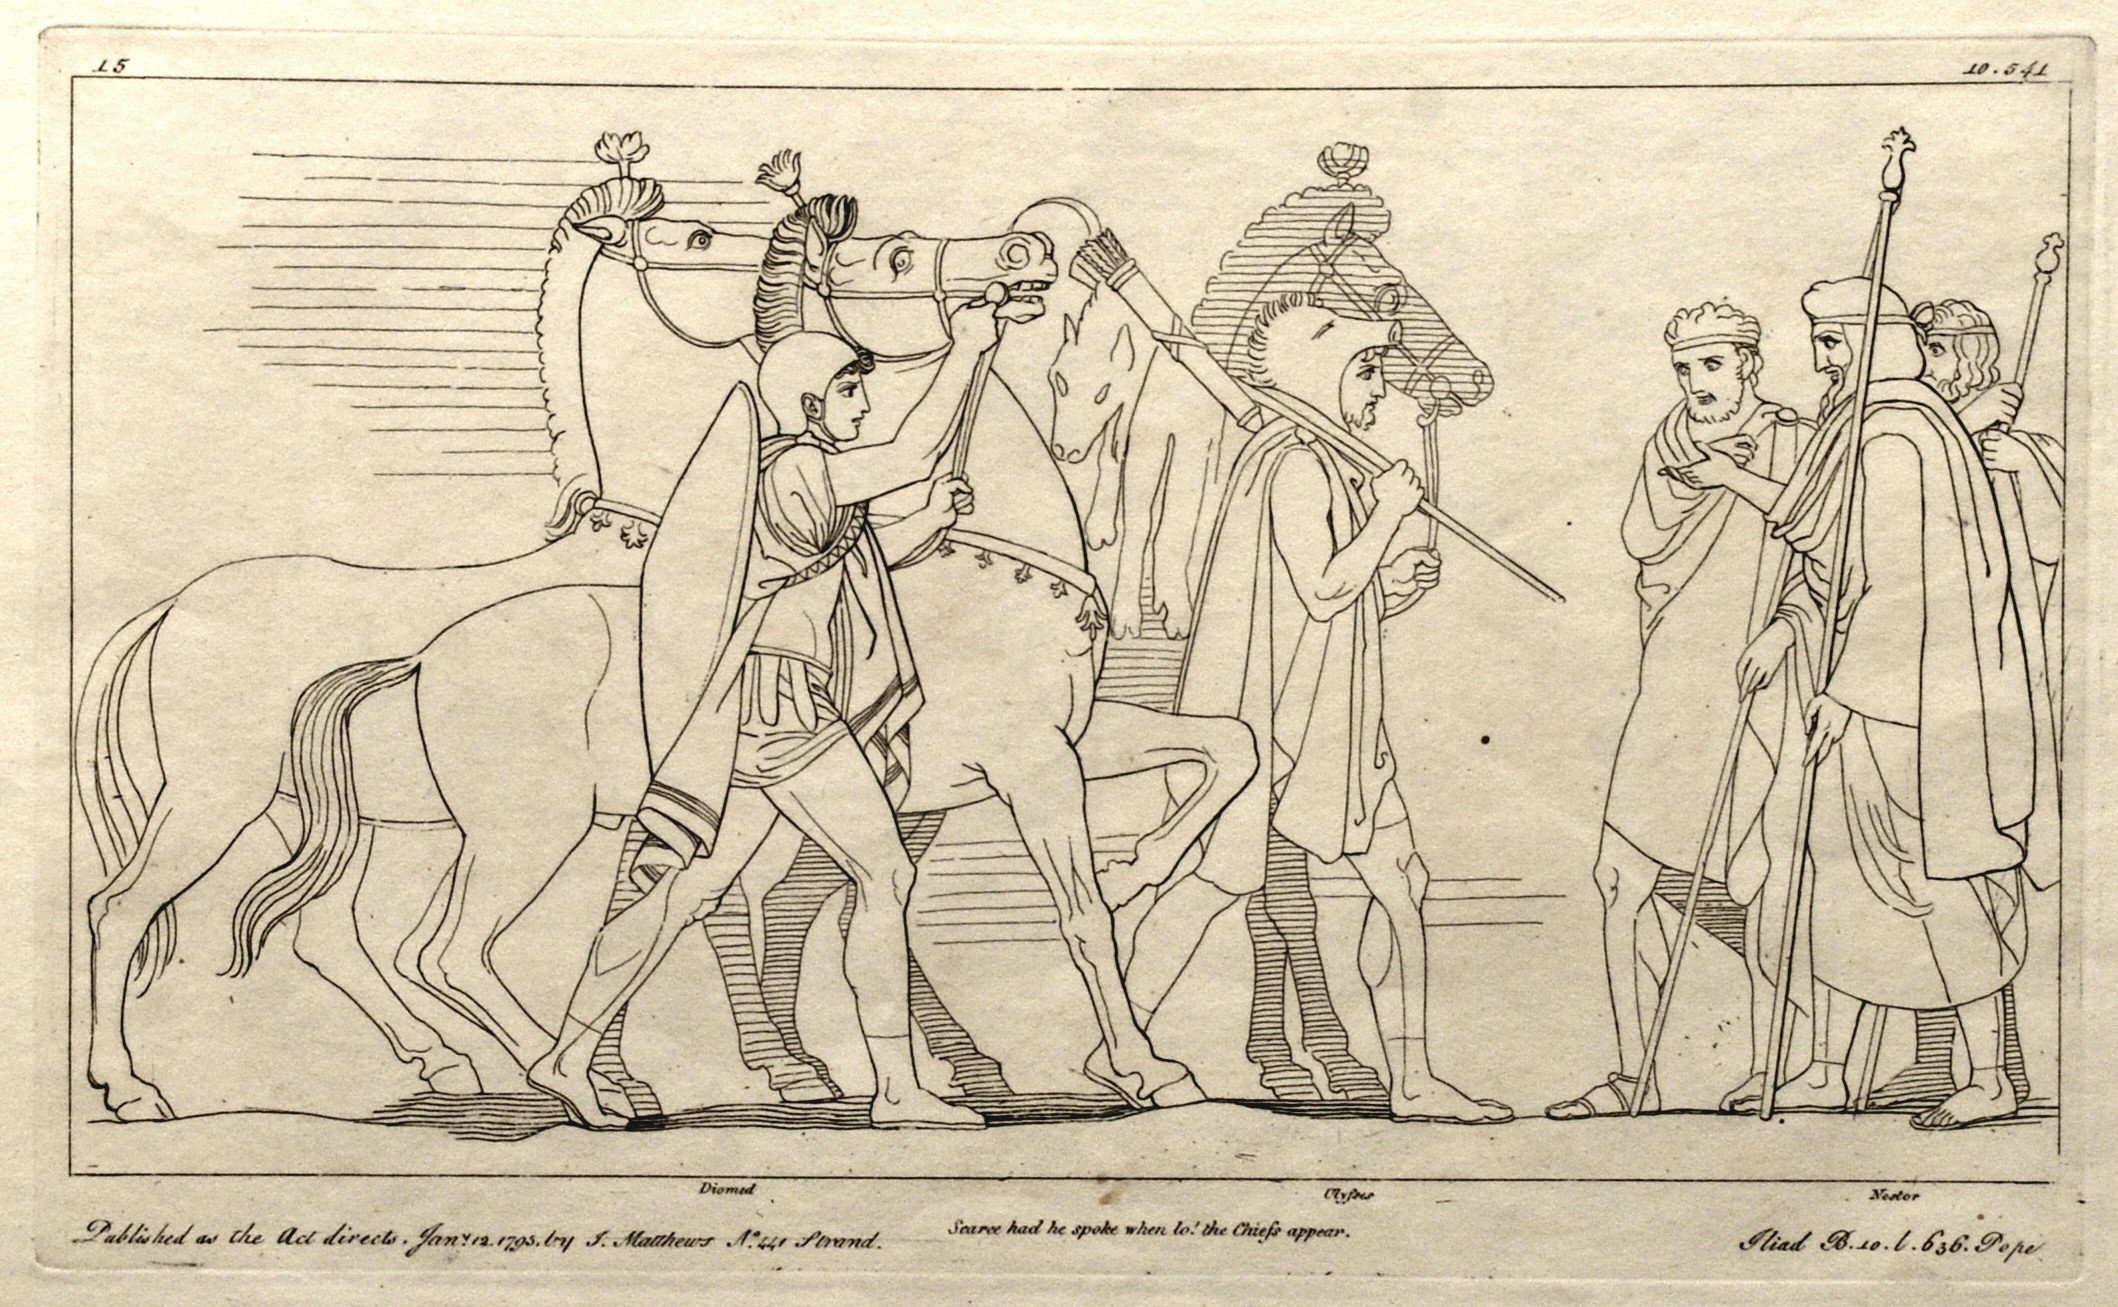 15
10.541
Diomed
Ulyſses
Nestor
Published as the Act directs. Jany. 12. 1795. by J. Matthews No. 441 Strand.
Scarce had he spoke when lo! the Chiefs appear.
Iliad B. 10. l. 636. Pope